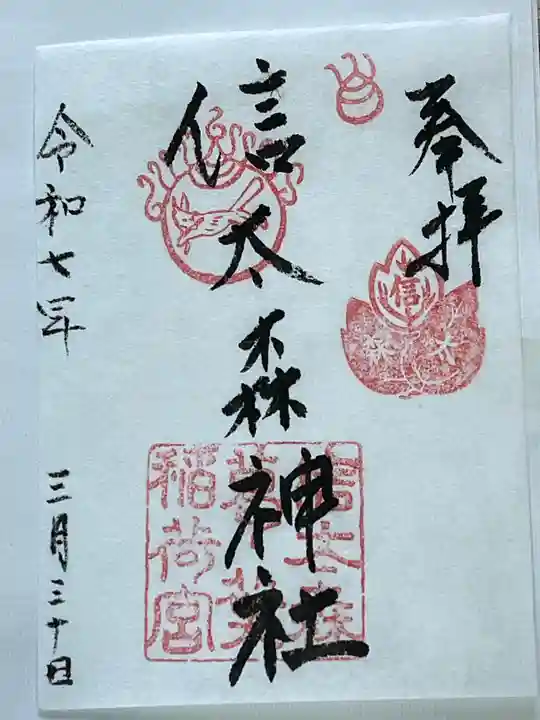 奉拝
信太森神社
令和七年
三月三十日
信
信太森
葛葉
稲荷宮